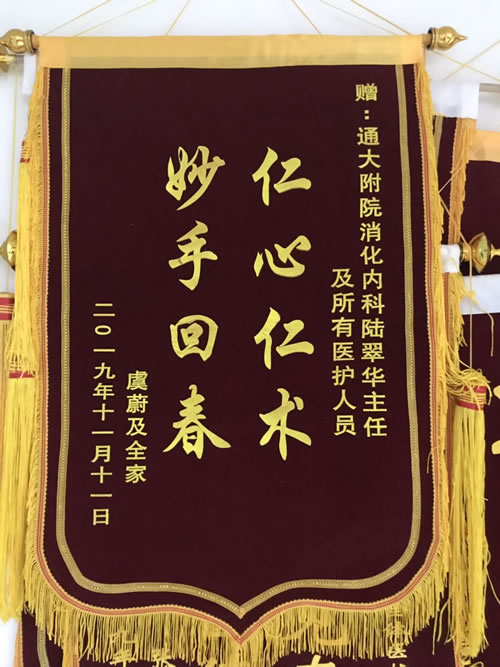 赠：通大附院消化内科陆翠华主任
及所有医护人员
仁心仁术
妙手回春
虞蔚及全家
二〇一九年十一月十一日